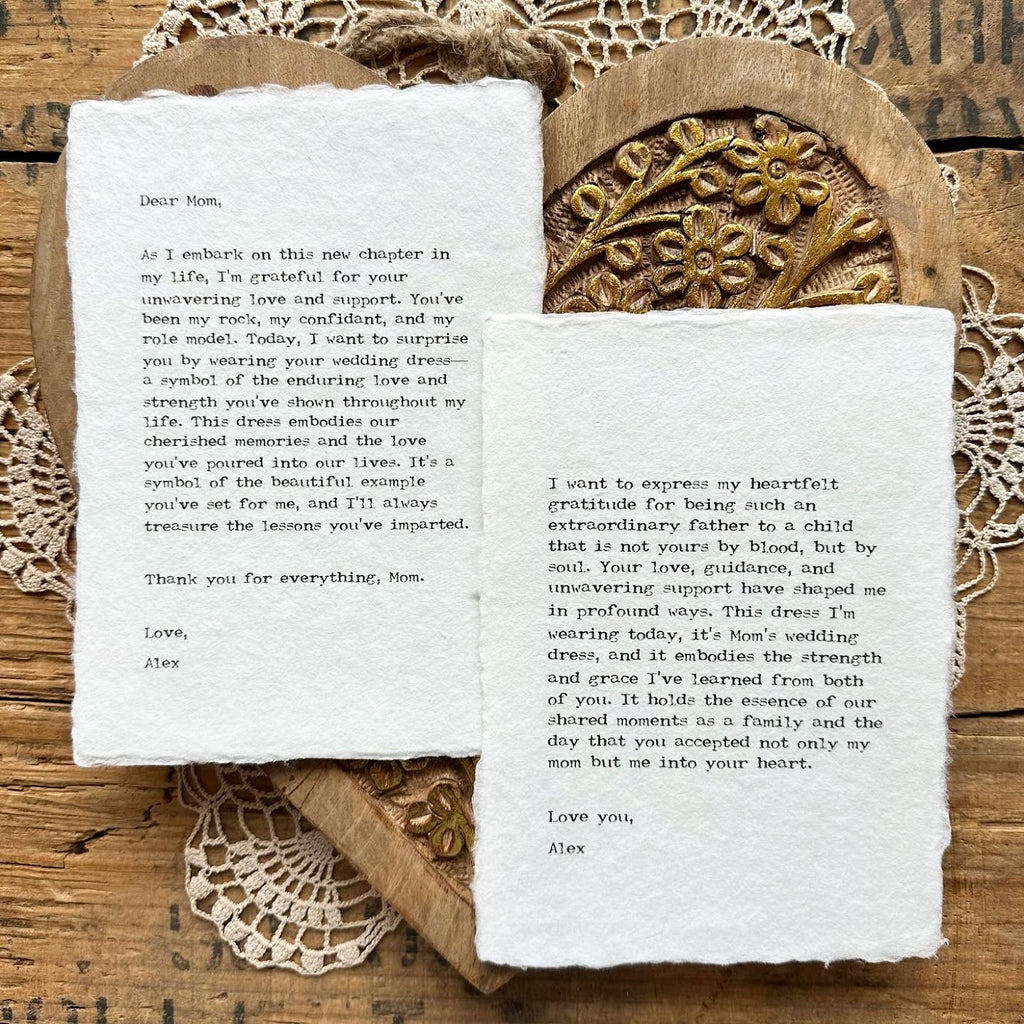 Dear Mom,
As I embark on this new chapter in
my life, I'm grateful for your
unwavering love and support. You've
been my rock, my confidant, and my
role model. Today, I want to surprise
you by wearing your wedding dress—
a symbol of the enduring love and
strength you've shown throughout my
life. This dress embodies our
cherished memories and the love
you've poured into our lives. It's a
symbol of the beautiful example
you've set for me, and I'll always
treasure the lessons you've imparted.
Thank you for everything, Mom.
Love,
Alex
I want to express my heartfelt
gratitude for being such an
extraordinary father to a child
that is not yours by blood, but by
soul. Your love, guidance, and
unwavering support have shaped me
in profound ways. This dress I'm
wearing today, it's Mom's wedding
dress, and it embodies the strength
and grace I've learned from both
of you. It holds the essence of our
shared moments as a family and the
day that you accepted not only my
mom but me into your heart.
Love you,
Alex